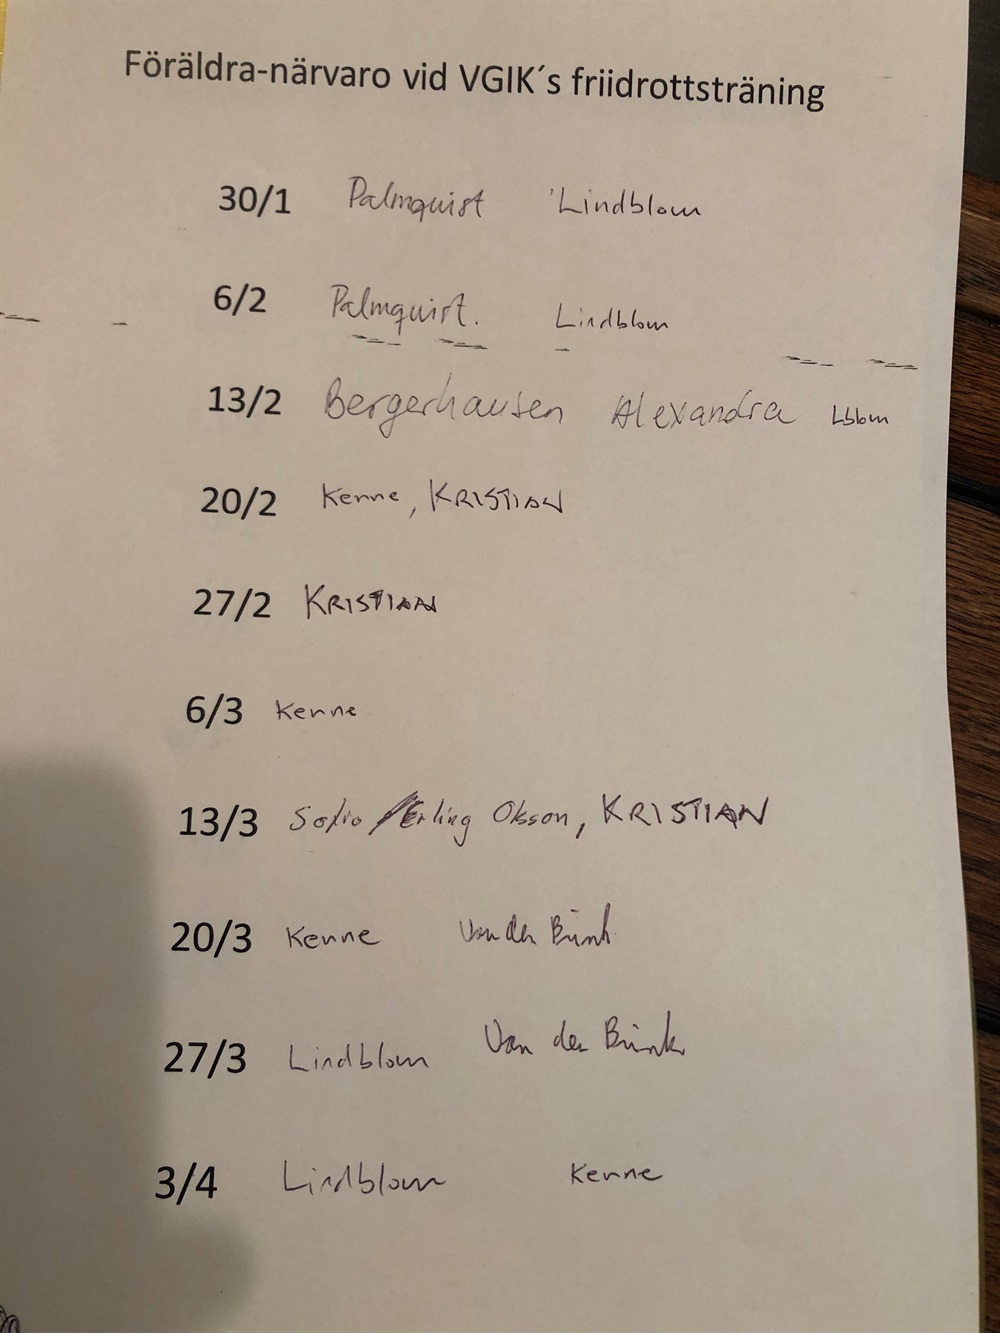 Föräldra-närvaro vid VGIK´s friidrottsträning
30/1 Palmquist Lindblom
6/2 Palmquist. Lindblom
13/2 Bergerhausen Alexandra Lblom
20/2 Kenne, KRISTIAN
27/2 KRISTIAN
6/3 Kenne
13/3 Erling Olsson, KRISTIAN
20/3 Kenne Van der
27/3 Lindblom Van der
3/4 Lindblom Kenne